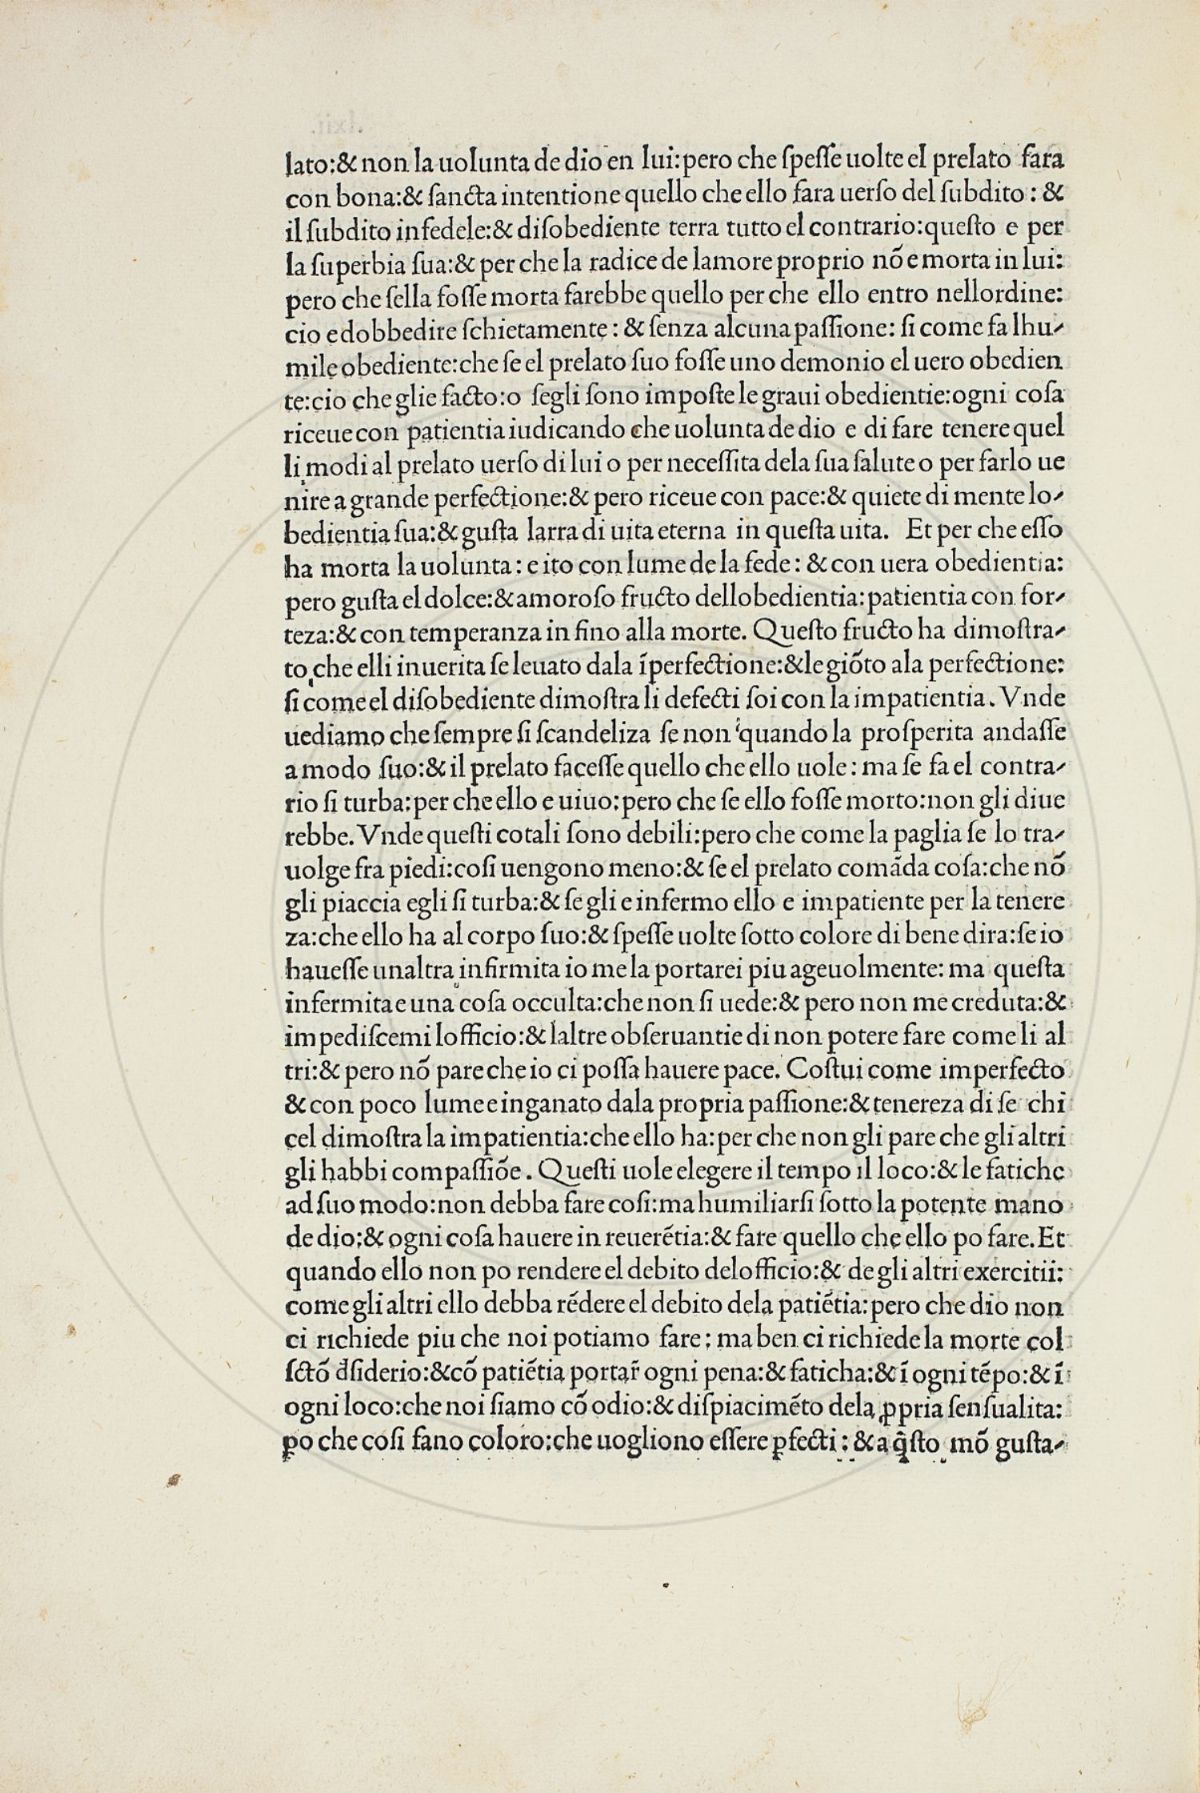 lato:& non la uolunta de dio en lui:pero che ſpeſſe uolte el prelato fara
con bona:& ſancta intentione quello che ello fara uerſo del ſubdito : &
il ſubdito infedele:& diſobediente terra tutto el contrario:queſto e per
la ſuperbia ſua:& per che la radice de lamore proprio nō e morta in lui:
pero che ſella foſſe morta farebbe quello per che ello entro nellordine:
cio e dobbedire ſchietamente : & ſenza alcuna paſſione: ſi come fa lhu-
mile obediente:che ſe el prelato ſuo foſſe uno demonio el uero obedien
te:cio che glie facto:o ſegli ſono impoſte le graui obedientie:ogni coſa
riceue con patientia iudicando che uolunta de dio e di fare tenere quel
li modi al prelato uerſo di lui o per neceſſita dela ſua ſalute o per farlo ue
nire a grande perfectione:& pero riceue con pace:& quiete di mente lo-
bedientia ſua:& guſta larra di uita eterna in queſta uita. Et per che eſſo
ha morta la uolunta : e ito con lume de la fede : & con uera obedientia:
pero guſta el dolce:& amoroſo fructo dellobedientia:patientia con for-
teza:& con temperanza in fino alla morte. Queſto fructo ha dimoſtra-
to che elli inuerita ſe leuato dala īperfectione:& le giōto ala perfectione:
ſi come el diſobediente dimoſtra li defecti ſoi con la impatientia. Vnde
uediamo che ſempre ſi ſcandeliza ſe non quando la proſperita andaſſe
a modo ſuo:& il prelato faceſſe quello che ello uole : ma ſe fa el contra-
rio ſi turba:per che ello e uiuo:pero che ſe ello foſſe morto:non gli diue
rebbe. Vnde queſti cotali ſono debili:pero che come la paglia ſe lo tra-
uolge fra piedi:coſi uengono meno:& ſe el prelato comāda coſa:che nō
gli piaccia egli ſi turba:& ſe gli e infermo ello e impatiente per la tenere
za:che ello ha al corpo ſuo:& ſpeſſe uolte ſotto colore di bene dira:ſe io
haueſſe unaltra infirmita io me la portarei piu ageuolmente: ma queſta
infermita e una coſa occulta:che non ſi uede:& pero non me creduta:&
impediſcemi lofficio:& laltre obſeruantie di non potere fare come li al
tri:& pero nō pare che io ci poſſa hauere pace. Coſtui come imperfecto
& con poco lume e inganato dala propria paſſione:& tenereza di ſe chi
cel dimoſtra la impatientia:che ello ha:per che non gli pare che gli altri
gli habbi compaſſiōe . Queſti uole elegere il tempo il loco:& le fatiche
ad ſuo modo:non debba fare coſi:ma humiliarſi ſotto la potente mano
de dio:& ogni coſa hauere in reuerētia:& fare quello che ello po fare. Et
quando ello non po rendere el debito delofficio:& de gli altri exercitii:
come gli altri ello debba rēdere el debito dela patiētia:pero che dio non
ci richiede piu che noi potiamo fare : ma ben ci richiede la morte col
ſctō dſiderio:& cō patiētia portar̄ ogni pena:& faticha:& ī ogni tēpo:& ī
ogni loco:che noi ſiamo cō odio:& diſpiacimēto dela ꝓpria ſenſualita:
ꝑo che coſi fano coloro:che uogliono eſſere ꝑfecti : & a q̄ſto mō guſta-